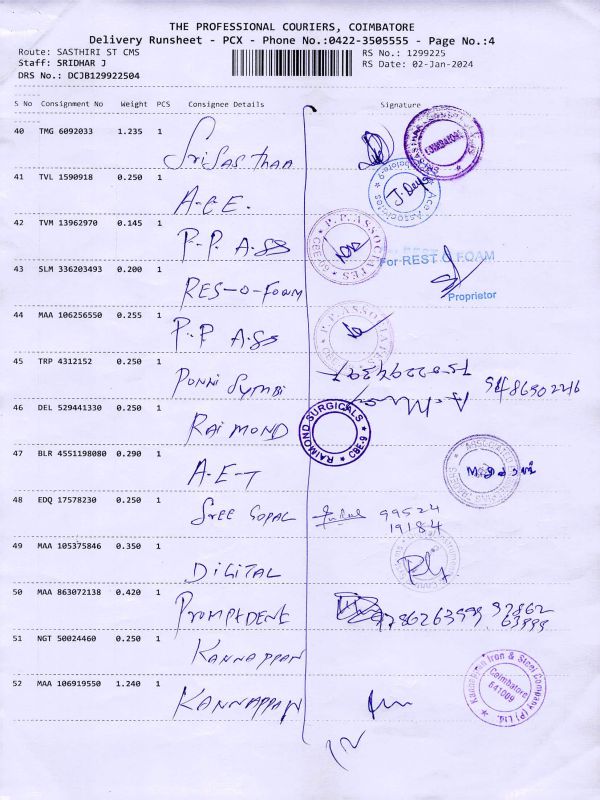 THE PROFESSIONAL COURIERS, COIMBATORE
Delivery Runsheet - PCX - Phone No.:0422-3505555 - Page No.:4
Route: SASTHIRI ST CMS
RS No.: 1299225
Staff: SRIDHAR J
RS Date: 02-Jan-2024
DRS No.: DCJB129922504
S No Consignment No Weight PCS Consignee Details Signature
40 TMG 6092033 1.235 1
Sri Sasthaa
COIMBATORE
41 TVL 1590918 0.250 1
A.C.E.
Ace Associates
J. Deepa
42 TVM 13962970 0.145 1
P.P. Ass
P.P. ASSOCIATES
43 SLM 336203493 0.200 1
RES-O-FOAM
For REST O FOAM
Proprietor
44 MAA 106256550 0.255 1
P.P Ass
P.P. ASSOCIATES
45 TRP 4312152 0.250 1
PONNI SYMBI
9486502216
46 DEL 529441330 0.250 1
RAIMOND
RAIMOND SURGICALS
CBE-9
47 BLR 4551198080 0.290 1
A-E-T
48 EDQ 17578230 0.250 1
SREE GOPAL
99524
19184
49 MAA 105375846 0.350 1
DIGITAL
50 MAA 863072138 0.420 1
PROMPTDENT
9786263999
97862
63999
51 NGT 50024460 0.250 1
KANNAPPAN
52 MAA 106919550 1.240 1
KANNAPPAN
Kannappan Iron & Steel Company (P) Ltd.
Coimbatore
641009